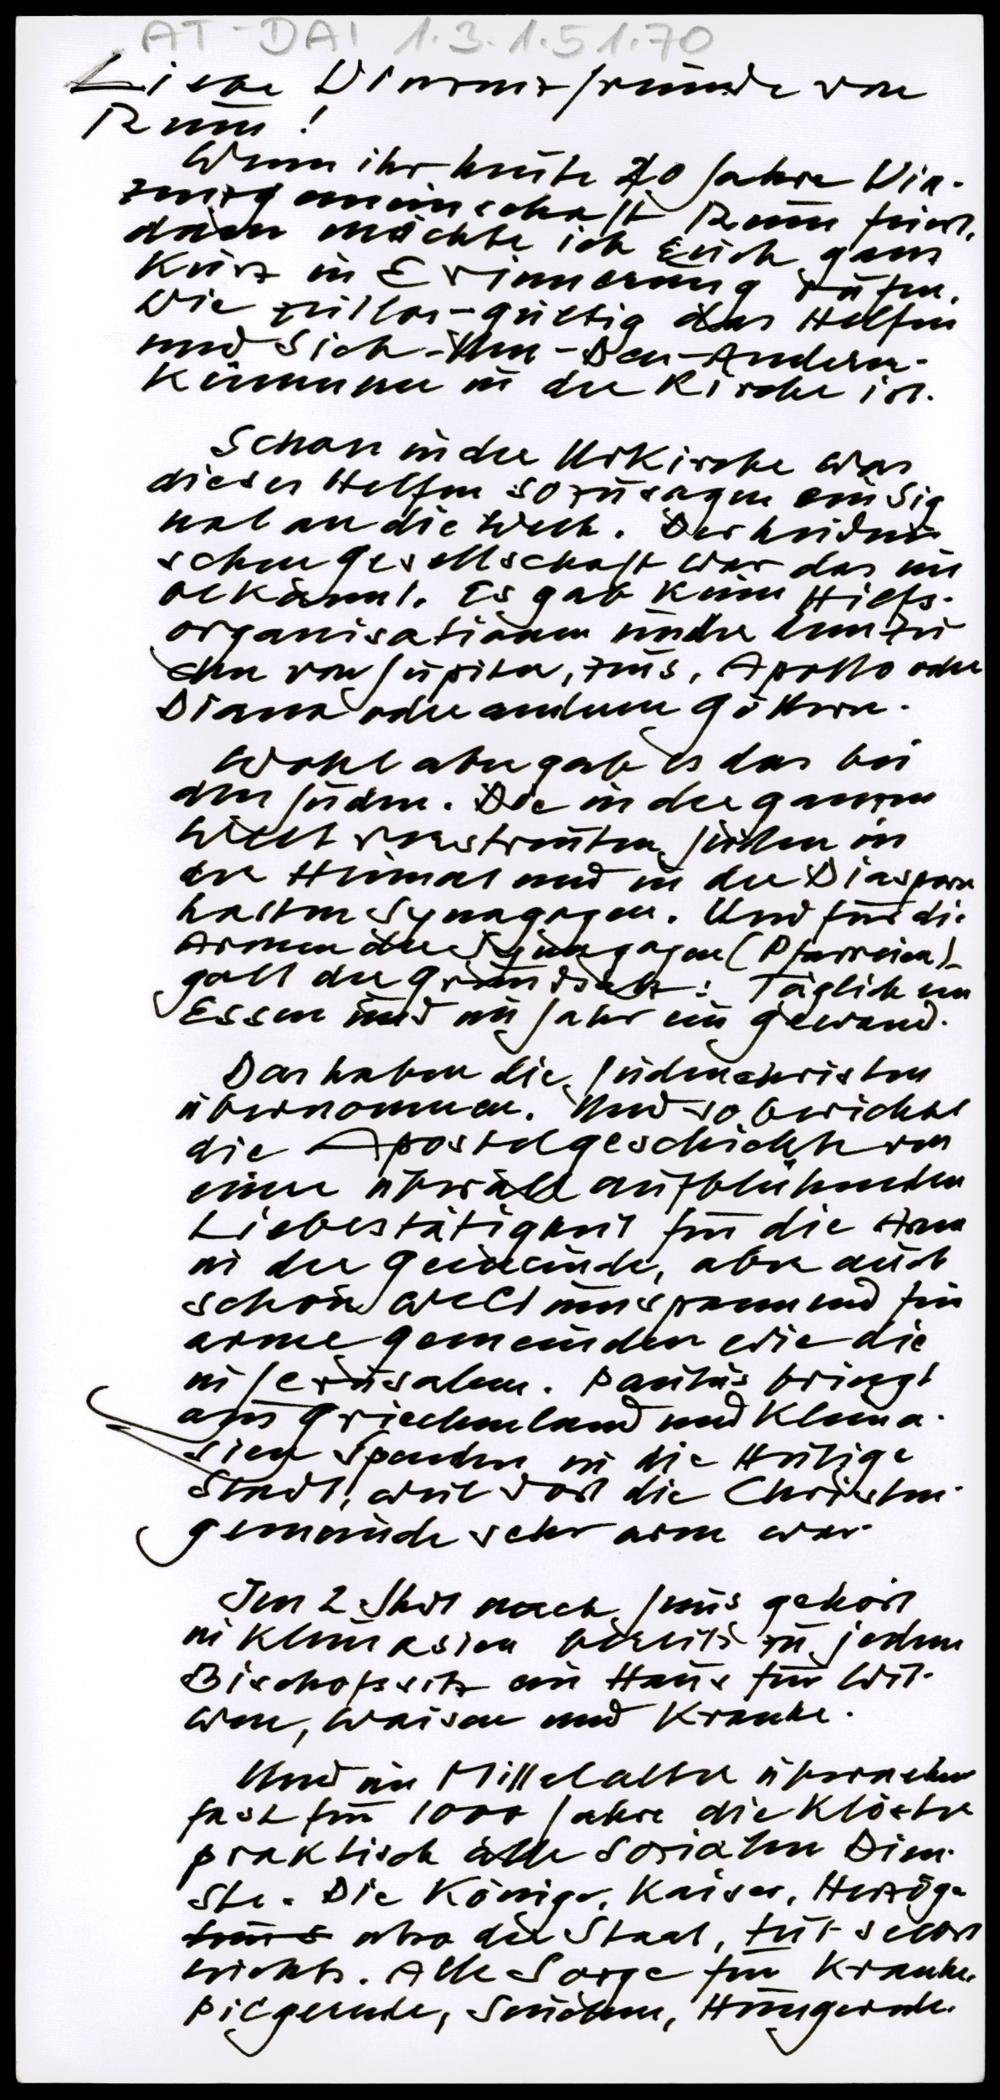 AT-DAI 1.3.1.51.70
Liebe Vinzenzfreunde von
Rum!
Wenn ihr heute 20 Jahre Vin-
zenzgemeinschaft Rum feiert,
dann möchte ich Euch ganz
kurz in Erinnerung rufen,
wie zeitlos-gültig das Helfen
und Sich-Um-Den-Andern-
Kümmern in der Kirche ist.
Schon in der Urkirche war
dieses Helfen sozusagen ein Sig
nal an die Welt. Der heidni-
schen Gesellschaft war das un
bekannt. Es gab keine Hilfs-
organisationen in den
von Jupiter, Zeus, Apollo oder
Diana oder anderen Göttern.
Wohl aber gab es das bei
den Juden. Die in der ganzen
Welt verstreuten Juden in
der Heimat und in der Diaspora
hatten Synagogen. Und für die
Armen der Synagogen (Pfarreien)
galt der Grundsatz: Täglich ein
Essen und im Jahr ein Gewand.
Das haben die Judenchristen
übernommen. Und so berichtet
die Apostelgeschichte von
einer überall aufblühenden
Liebestätigkeit für die Armen
in der Gemeinde, aber auch
schon weltumspannend für
arme Gemeinden wie die
in Jerusalem. Paulus bringt
aus Griechenland und Kleina-
sien Spenden in die Heilige
Stadt, weil dort die Christen-
gemeinde sehr arm war.
Im 2. Jhdt nach Jesus gehört
in Kleinasien bereits zu jedem
Bischofssitz ein Haus für Wit-
wen, Waisen und Kranke.
Und im Mittelalter übernehmen
fast für 1000 Jahre die Klöster
praktisch alle sozialen Dien-
ste. Die Könige, Kaiser, Herzöge
also der Staat, tut selbst
nichts. Alle Sorge für Kranke,
Pilgernde, Seuchen, Hungernde